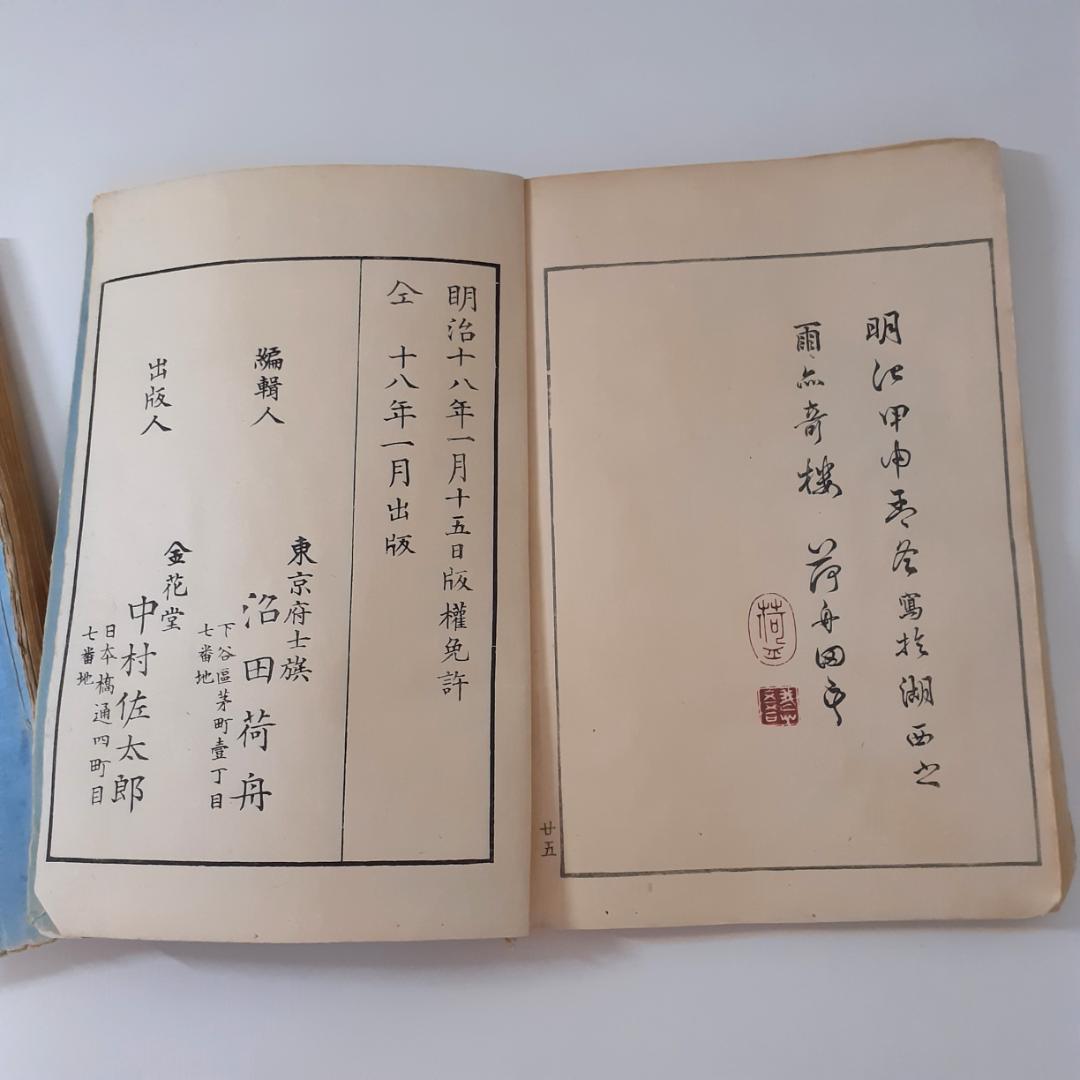 明治甲申孟冬寫於湖西之
雨亦奇樓 荷舟田守
荷
廿五
明治十八年一月十五日版權免許
仝 十八年一月出版
編輯人
東京府士族
下谷區茅町壹丁目
七番地
沼田荷舟
出版人
金花堂
日本橋通四町目
七番地
中村佐太郎